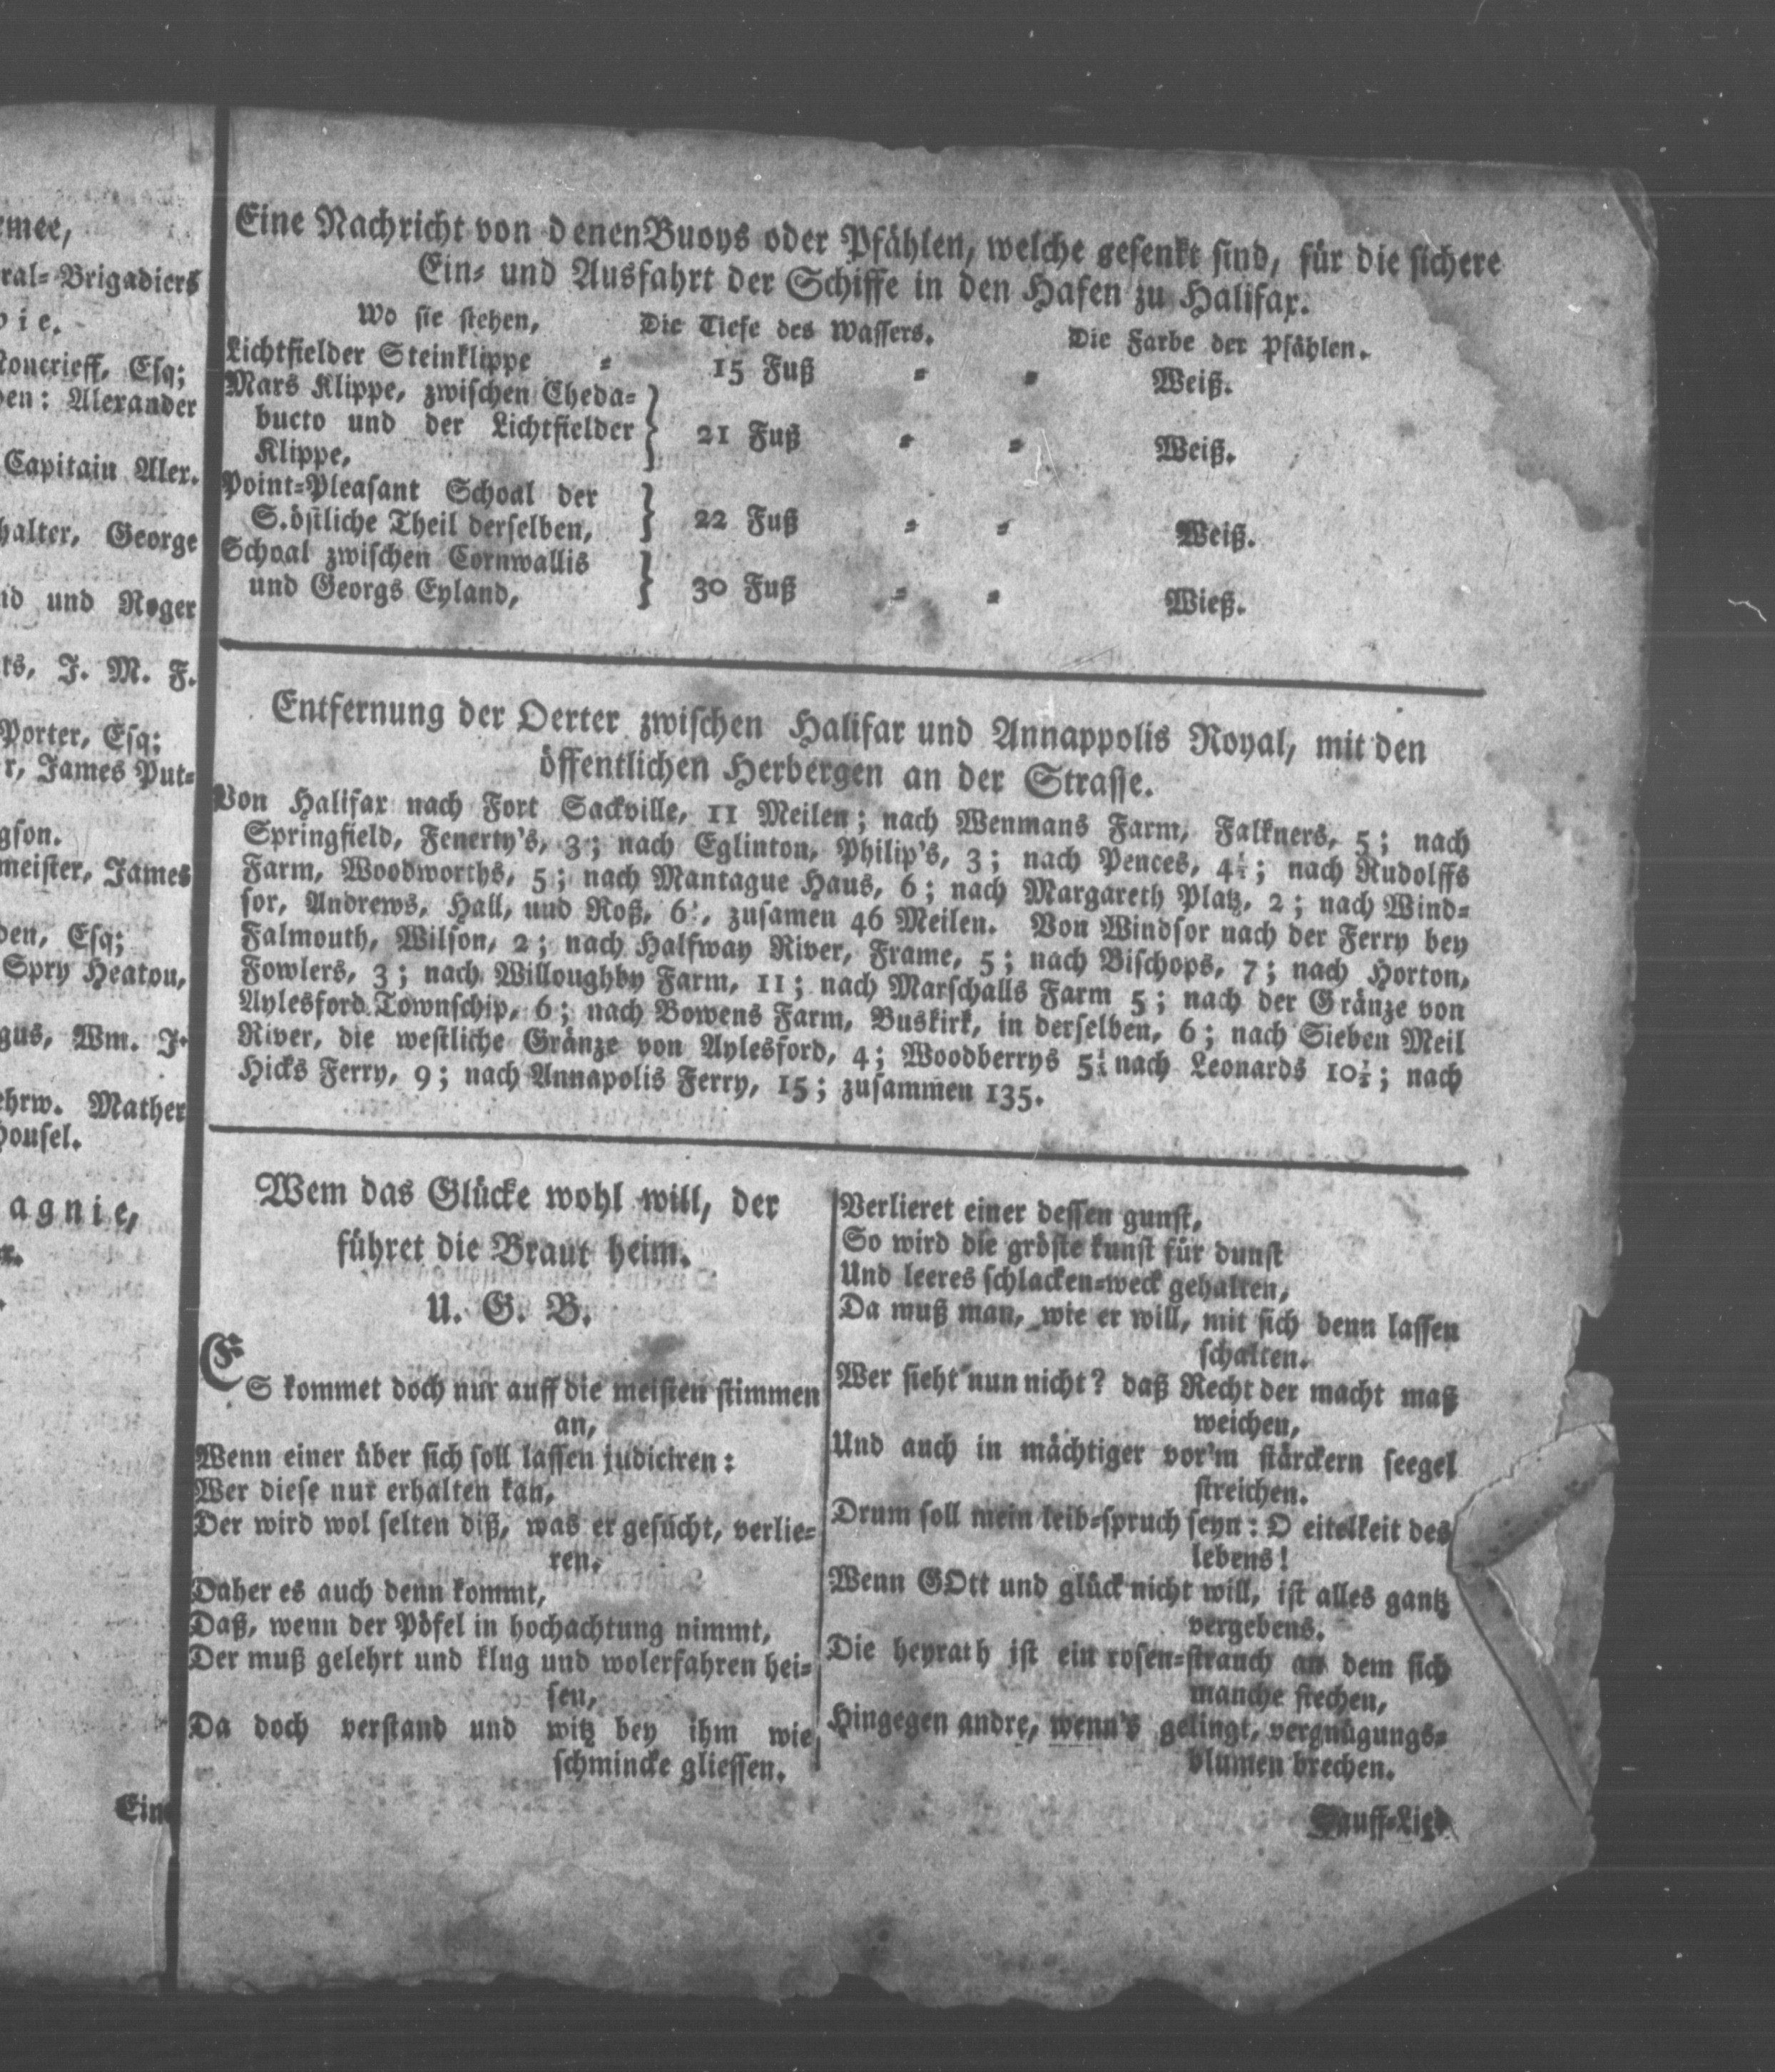 mee,
ral=Brigadiers
ie.
oncrieff, Esq;
en: Alexander
Capitain Alex.
halter, George
id und Roger
ks, J. M. F.
Porter, Esq;
r, James Put=
gson.
meister, James
den, Esq;
Spry Heaton,
gus, Wm. J.
ehrw. Mather
housel.
agnie,
Eine
Eine Nachricht von denenBuoys oder Pfählen, welche gesenkt sind, für die sichere
Ein= und Ausfahrt der Schiffe in den Hafen zu Halifax.
Wo sie stehen, Die Tiefe des Wassers. Die Farbe der Pfählen.
Lichtfielder Steinklippe = 15 Fuß = = Weiß.
Mars Klippe, zwischen Cheda=
bucto und der Lichtfielder } 21 Fuß = = Weiß.
Klippe,
Point=Pleasant Schoal der
S.östliche Theil derselben, } 22 Fuß = = Weiß.
Schoal zwischen Cornwallis
und Georgs Eyland, } 30 Fuß = = Wieß.
Entfernung der Oerter zwischen Halifax und Annappolis Royal, mit den
öffentlichen Herbergen an der Strasse.
Von Halifax nach Fort Sackville, 11 Meilen; nach Wenmans Farm, Falkners, 5; nach
Springfield, Fenerty's, 3; nach Eglinton, Philip's, 3; nach Pences, 4½; nach Rudolffs
Farm, Woodworths, 5; nach Mantague Haus, 6; nach Margareth Platz, 2; nach Wind=
sor, Andrews, Hall, und Roß, 6½, zusamen 46 Meilen. Von Windsor nach der Ferry bey
Falmouth, Wilson, 2; nach Halfway River, Frame, 5; nach Bischops, 7; nach Horton,
Fowlers, 3; nach Willoughby Farm, 11; nach Marschalls Farm 5; nach der Gränze von
Aylesford Townschip, 6; nach Bowens Farm, Buskirk, in derselben, 6; nach Sieben Meil
River, die westliche Gränze von Aylesford, 4; Woodberrys 5½ nach Leonards 10½; nach
Hicks Ferry, 9; nach Annapolis Ferry, 15; zusammen 135.
Wem das Glücke wohl will, der
führet die Braut heim.
U. G. B.
ES kommet doch nur auff die meisten stimmen
an,
Wenn einer über sich soll lassen judiciren:
Wer diese nur erhalten kan,
Der wird wol selten diß, was er gesucht, verlie=
ren.
Daher es auch denn kommt,
Daß, wenn der Pöfel in hochachtung nimmt,
Der muß gelehrt und klug und wolerfahren hei=
sen,
Da doch verstand und witz bey ihm wie
schmincke gliessen.
Verlieret einer dessen gunst,
So wird die gröste kunst für dunst
Und leeres schlacken=weck gehalten,
Da muß man, wie er will, mit sich denn lassen
schalten.
Wer sieht nun nicht? daß Recht der macht maß
weichen,
Und auch in mächtiger vor'm stärckern seegel
streichen.
Drum soll mein leib=spruch seyn: O eitelkeit des
lebens!
Wenn GOtt und glück nicht will, ist alles gantz
vergebens.
Die heyrath ist ein rosen=strauch an dem sich
manche stechen,
Hingegen andre, wenn's gelingt, vergnügungs=
blumen brechen.
Sauff=Lied